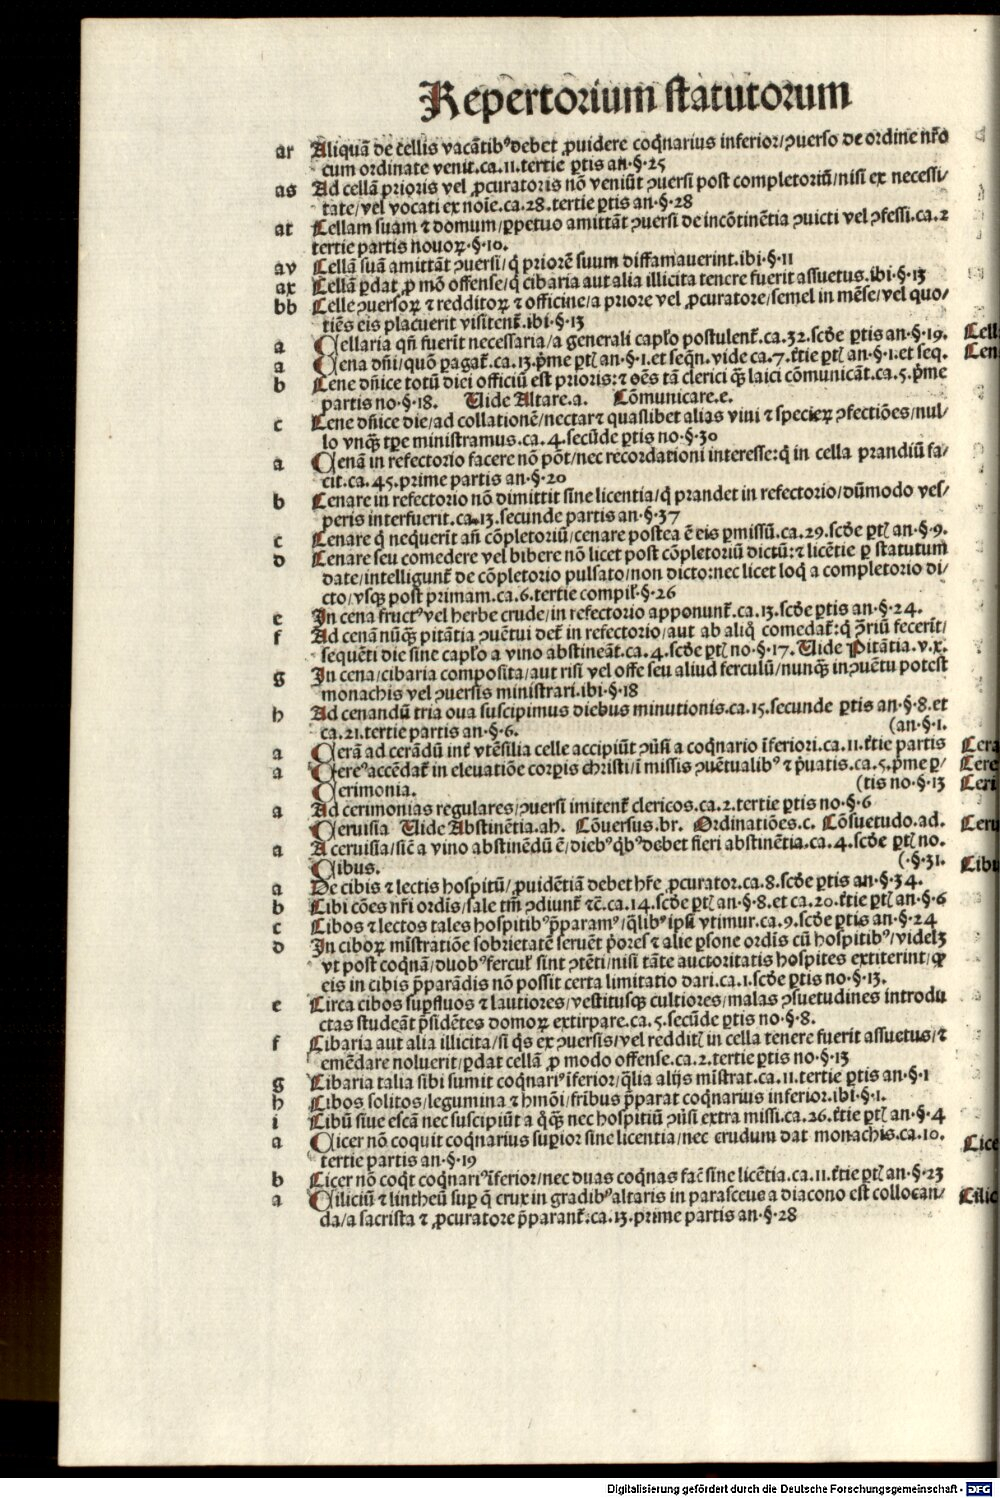 Repertorium statutorum
ar Aliquā de cellis vacātibꝰ debet ꝓuidere coq̄narius inferior/ ꝯuerso de ordine nr̄o
cum ordinate venit.ca.11.tertie ꝑtis an.§.25
as Ad cellā prioris vel ꝓcuratoris nō veniūt ꝯuersi post completoriū/nisi ex necessi/
tate/vel vocati ex noīe.ca.28.tertie ꝑtis an.§.28
at Cellam suam ⁊ domum/ꝑpetuo amittāt ꝯuersi de incōtinētia ꝯuicti vel ꝯfessi.ca.2
tertie partis nouoꝝ.§.10.
av Cellā suā amittāt ꝯuersi/q̇ priorē suum diffamauerint.ibi.§.11
ax Cellā ꝑdat ꝓ mō offense/q̇ cibaria aut alia illicita tenere fuerit assuetus.ibi.§.13
bb Celle ꝯuersoꝝ ⁊ redditoꝝ ⁊ officine/a priore vel ꝓcuratore/semel in mēse/vel quo/
tiēs eis placuerit visitent̄.ibi.§.13
a Cellaria qn̄ fuerit necessaria/a generali capl̄o postulent̄.ca.32.scd̄e ꝑtis an.§.19.
a Cena dn̄i/quō ꝑagat̄.ca.13.p̄me ꝑtꝭ an.§.1.et seq̄n.vide ca.7.t̄tie ꝑtꝭ an.§.1.et seq.
b Cene dn̄ice totū diei officiū est prioris:⁊ oēs tā clerici q̄ꝫ laici cōmunicāt.ca.5.p̄me
partis no.§.18. Uide Altare.a. Cōmunicare.e.
c Cene dn̄ice die/ad collationē/nectar ⁊ quaslibet alias vini ⁊ specieꝝ ꝯfectiōes/nul/
lo vnq̄ꝫ tꝑe ministramus.ca.4.secūde ꝑtis no.§.30
a Cenā in refectorio facere nō pōt/nec recordationi interesse:q̇ in cella prandiū fa/
cit.ca.45.prime partis an.§.20
b Cenare in refectorio nō dimittit sine licentia/q̇ prandet in refectorio/dūmodo ves/
peris interfuerit.ca.13.secunde partis an.§.37
c Cenare q̇ nequerit an̄ cōpletoriū/cenare postea ē eis ꝑmissū.ca.29.scd̄e ꝑtꝭ an.§.9.
d Cenare seu comedere vel bibere nō licet post cōpletoriū dictū:⁊ licētie ꝑ statutum
date/intelligunt̄ de cōpletorio pulsato/non dicto:nec licet loq̇ a completorio di/
cto/vsqꝫ post primam.ca.6.tertie compil̄.§.26
e In cena fructꝰ vel herbe crude/in refectorio apponunt̄.ca.13.scd̄e ꝑtis an.§.24.
f Ad cenā nūq̄ꝫ pitātia ꝯuētui det̄ in refectorio/aut ab aliq̇ comedat̄:q̇ ꝯ̄riū fecerīt/
sequēti die sine capl̄o a vino abstineāt.ca.4.scd̄e ꝑtꝭ no.§.17. Uide Pitātia.v.x.
g In cena/cibaria composita/aut risi vel offe seu aliud ferculū/nunq̄ꝫ in ꝯuētu potest
monachis vel ꝯuersis ministrari.ibi.§.18
h Ad cenandū tria oua suscipimus diebus minutionis.ca.15.secunde ꝑtis an.§.8.et
ca.21.tertie partis an.§.6. (an.§.1.
a Cerā ad cerādū int̄ vtēsilia celle accipiūt ꝯūsi a coq̄nario īferiori.ca.11.t̄tie partis
a Cereꝰ accēdat̄ in eleuatiōe corꝑis christi/ī missis ꝯuētualibꝰ ⁊ p̄uatis.ca.5.p̄me ꝑ/
Cerimonia. (tis no.§.13
a Ad cerimonias regulares/ꝯuersi imitent̄ clericos.ca.2.tertie ꝑtis no.§.6
Ceruisia Uide Abstinētia.ah. Cōuersus.br. Ordinatiōes.c. Cōsuetudo.ad.
a A ceruisia/sic̄ a vino abstinēdū ē/diebꝰ q̇bꝰ debet fieri abstinētia.ca.4.scd̄e ꝑtꝭ no.
Cibus. (.§.31.
a De cibis ⁊ lectis hospitū/ꝓuidētiā debet hr̄e ꝓcurator.ca.8.scd̄e ꝑtis an.§.34.
b Cibi cōes nr̄i ordīs/sale tm̄ ꝯdiunt̄ ⁊c̄.ca.14.scd̄e ꝑtꝭ an.§.8.et ca.20.t̄tie ꝑtꝭ an.§.6
c Cibos ⁊ lectos tales hospitibꝰ p̄paramꝰ/q̄libꝰ ipsi vtimur.ca.9.scd̄e ꝑtis an.§.24
d In ciboꝝ mīstratiōe sobrietatē seruēt p̄ores ⁊ alie ꝑsone ordīs cū hospitibꝰ/videlꝫ
vt post coq̄nā/duobꝰ fercul̄ sint ꝯtēti/nisi tāte auctoritatis hospites extiterint/ꝙ
eis in cibis p̄parādis nō possit certa limitatio dari.ca.1.scd̄e ꝑtis no.§.13.
e Circa cibos suꝑfluos ⁊ lautiores/vestitusqꝫ cultiores/malas ꝯsuetudines introdu
ctas studeāt p̄sidētes domoꝝ extirpare.ca.5.secūde ꝑtis no.§.8.
f Cibaria aut alia illicita/si q̇s ex ꝯuersis/vel redditꝭ in cella tenere fuerit assuetus/⁊
emēdare noluerit/ꝑdat cellā ꝓ modo offense.ca.2.tertie ꝑtis no.§.13
g Cibaria talia sibi sumit coq̄nariꝰ īferior/q̄lia alijs mīstrat.ca.11.tertie ꝑtis an.§.1
h Cibos solitos/legumina ⁊ hmōi/fribus p̄parat coq̄narius inferior.ibi.§.1.
i Cibū siue escā nec suscipiūt a q̇q̄ꝫ nec hospitiū ꝯūsi extra missi.ca.26.t̄tie ꝑtꝭ an.§.4
a Cicer nō coquit coq̄narius suꝑior sine licentia/nec crudum dat monachis.ca.10.
tertie partis an.§.19
b Cicer nō coq̇t coq̄nariꝰ īferior/nec duas coq̄nas fac̄ sine licētia.ca.11.t̄tie ꝑtꝭ an.§.23
a Ciliciū ⁊ lintheū suꝑ q̄ crux in gradibꝰ altaris in parasceue a diacono est collocan/
da/a sacrista ⁊ ꝓcuratore p̄parant̄.ca.13.prime partis an.§.28
Cell
Cen
Cera
Cere
Ceri
Ceru
Cibu
Cice
Cilic
Digitalisierung gefördert durch die Deutsche Forschungsgemeinschaft - DFG